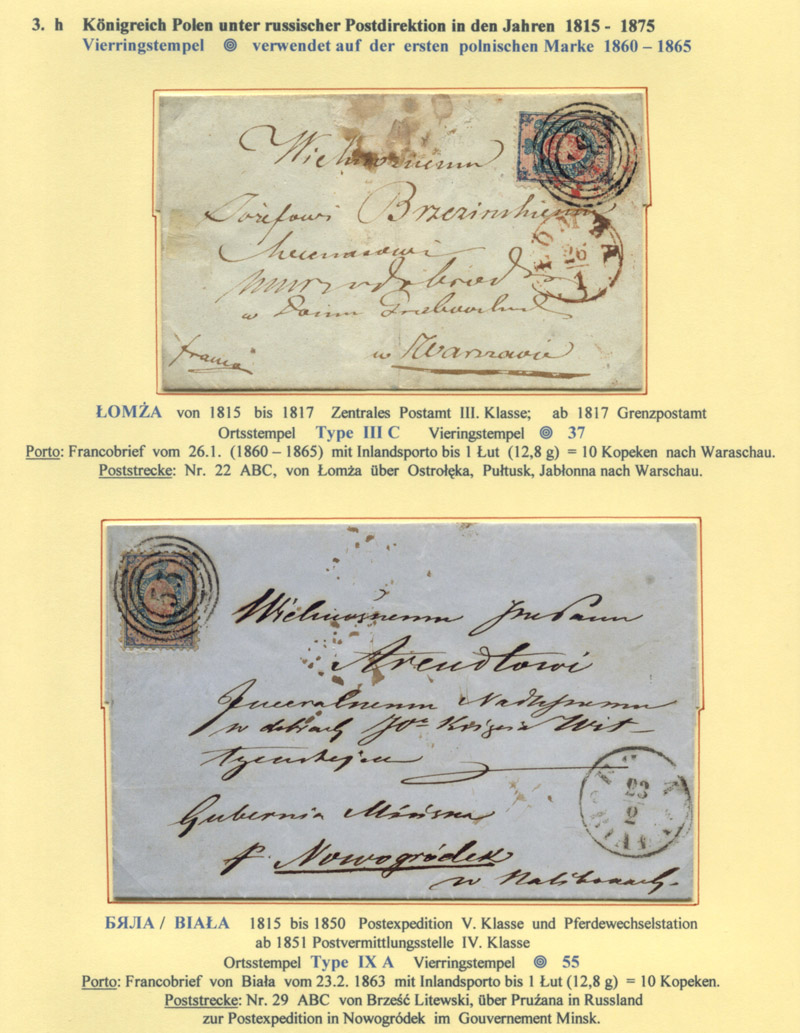 3. h Königreich Polen unter russischer Postdirektion in den Jahren 1815 - 1875
Vierringstempel verwendet auf der ersten polnischen Marke 1860 – 1865
Wielmożnemu
Józefowi Brzezinskiemu
w Warszawie
franco
ŁOMŻA
26
1
ŁOMŻA von 1815 bis 1817 Zentrales Postamt III. Klasse; ab 1817 Grenzpostamt
Ortsstempel Type III C Vieringstempel 37
Porto: Francobrief vom 26.1. (1860 – 1865) mit Inlandsporto bis 1 Łut (12,8 g) = 10 Kopeken nach Waraschau.
Poststrecke: Nr. 22 ABC, von Łomża über Ostrołęka, Pułtusk, Jabłonna nach Warschau.
55
Wielmożnemu Jmć Panu
Arendtowi
Jeneralnemu
w dobrach JOº Księcia Wit-
Gubernia Mińska
p. Nowogródek
w
23
2
БЯЛА / BIAŁA 1815 bis 1850 Postexpedition V. Klasse und Pferdewechselstation
ab 1851 Postvermittlungsstelle IV. Klasse
Ortsstempel Type IX A Vierringstempel 55
Porto: Francobrief von Biała vom 23.2. 1863 mit Inlandsporto bis 1 Łut (12,8 g) = 10 Kopeken.
Poststrecke: Nr. 29 ABC von Brześć Litewski, über Prużana in Russland
zur Postexpedition in Nowogródek im Gouvernement Minsk.